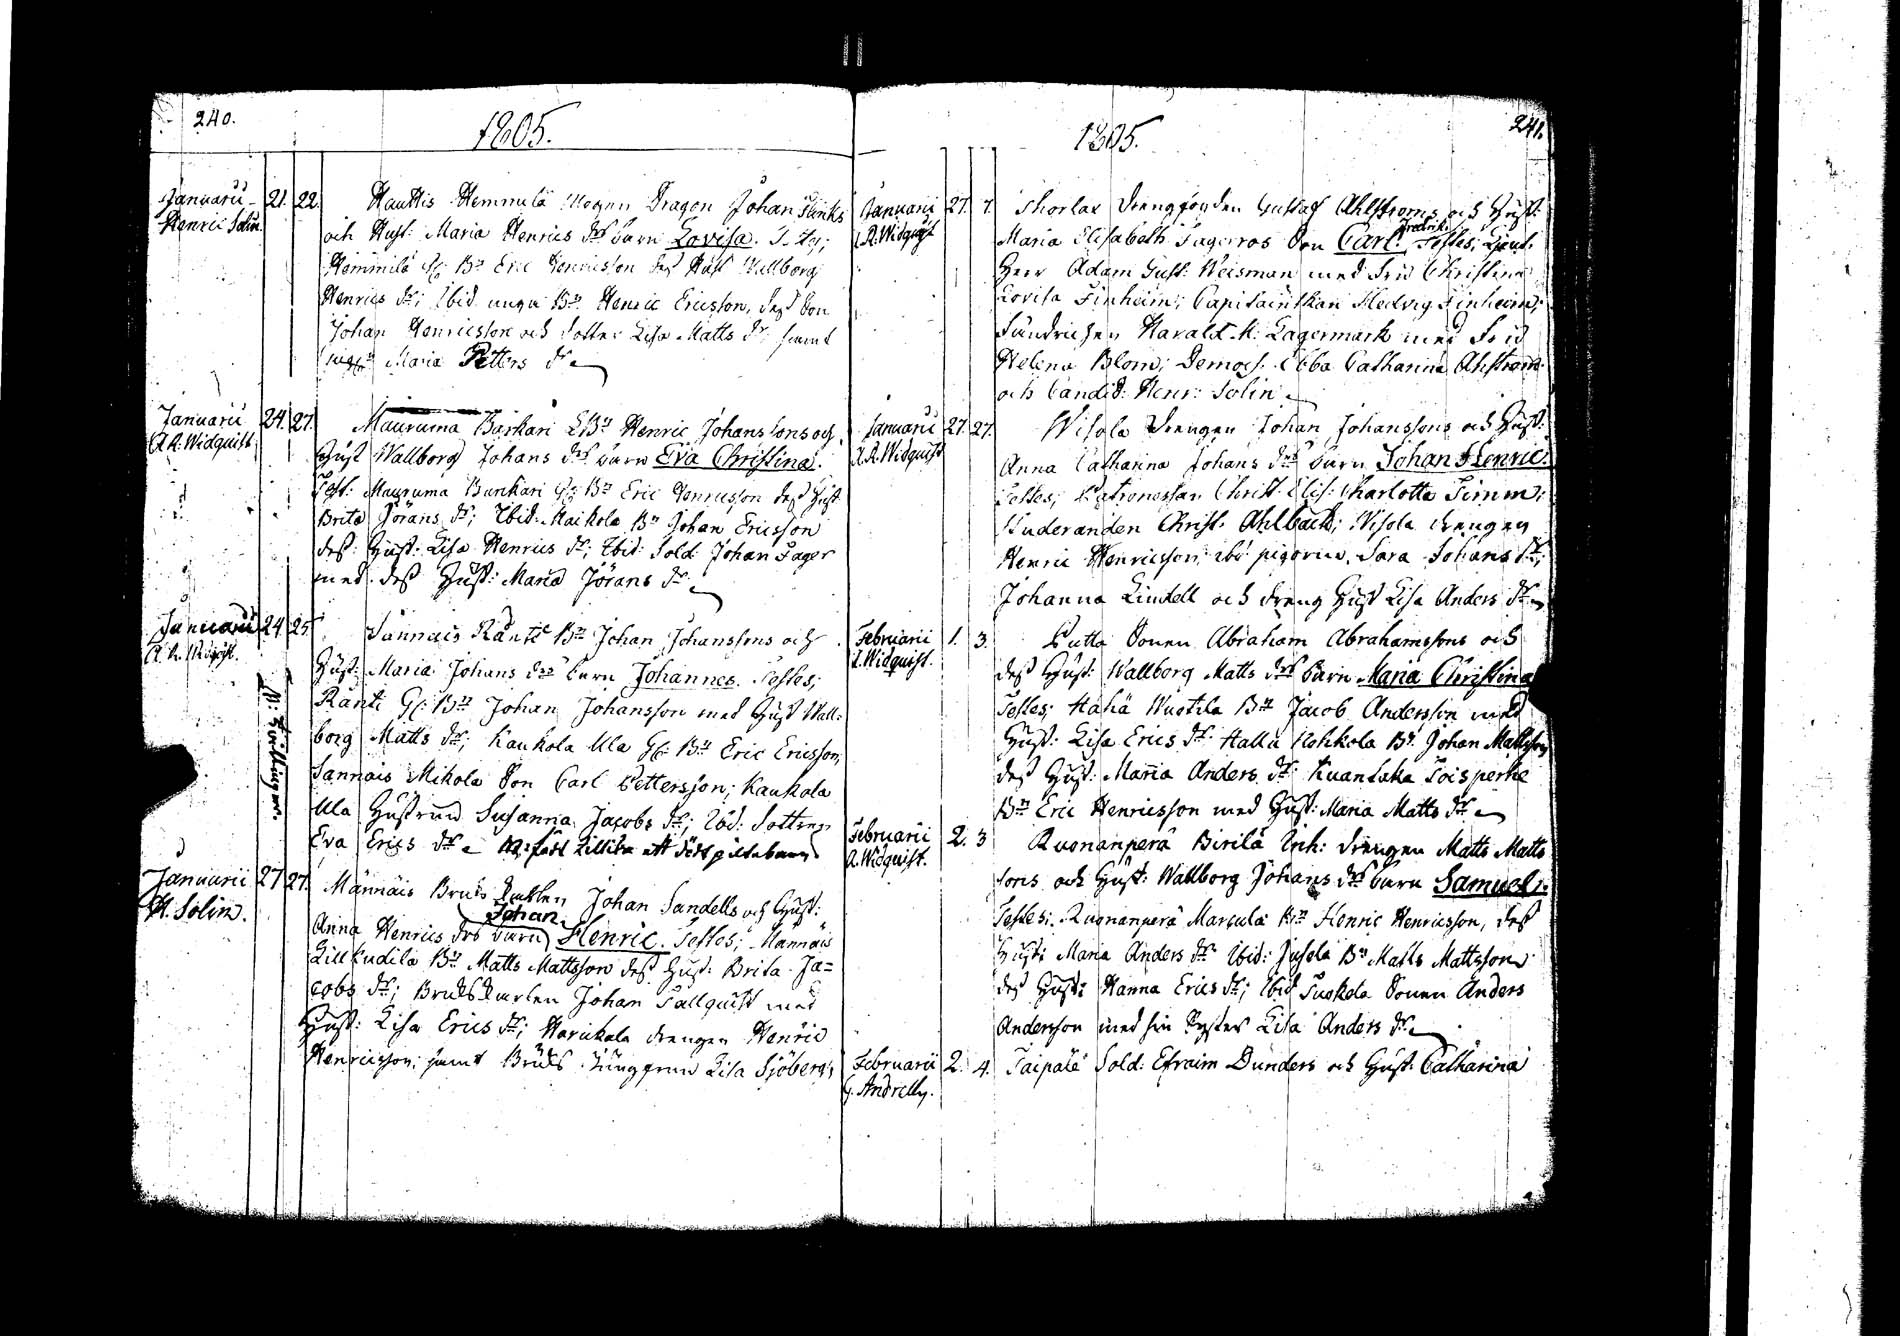 240.
1805.
Januarii
Henric Solin.
21. 22.
Hauttis Hemmilä Mogen Dragon Johan Flinks
och Hust: Maria Henrics drs barn Lovisa. T. ty;
Hemmilä Gl: Bn Eric Henricsson dess Hust Wallborg
Henrics dr; Ibid. unga Bn Henric Ericsson, dess Son
Johan Henricsson och dotter Lisa Matts dr samt
Maria Petters dr
Januarii
A. A. Widquist.
24. 27.
Mauruma Barkari Bn Henric Johanssons och
Hust Wallborg Johans drs barn Eva Christina.
Test: Mauruma Bärkäri Gl: Bn Eric Henricsson dess Hust
Brita Jörans dr; Ibid: Maikola Bn Johan Ericsson
dess Hust: Lisa Henrics dr; Ibid: Sold: Johan Fager
med dess Hust: Maria Jörans dr
Januarii
A. A. Widqvist.
24 25
N: Tvillingar.
Sannais Ränti Bn Johan Johanssons och
Hust: Maria Johans drs barn Johannes. Testes;
Ränti Gl: Bn Johan Johansson med Hust Wall:
borg Matts dr; Kaukola Ula Gl: Bn Eric Ericsson;
Sannais Mikola Son Carl Pettersson; Kaukola
Ula Hustrun Susanna Jacobs dr; Ibid: dottren
Eva Erics dr
Januarii
H. Solin.
27 27.
Männäis Bruks Johan Sandells och Hust:
Johan
Anna Henrics drs barn Henric. Testes; Männäis
Lill Kudila Bn Matts Mattsson dess Hust: Brita Ja=
cobs dr; Bruks Johan Fallquist med
Hust: Lisa Erics dr; Harickala drengen Henric
Henricsson; samt Bruks Jungfrun Lisa Sjöberg;
241.
1805.
Januarii
A. Widquist
27. 7.
Thorlax Gustaf Ahlstroms och Hust:
Fredric
Maria Elisabeth Fagerros Son Carl. Testes; Lieut.
Herr Adam Gust: Weisman med Frid Christina
Lovisa Finheim; Capitainskan Hedvig Finheim;
Fändrichen Harald M: Lagermark med Frid
Helena Blom; Demois. Ebba Catharina Ahlström
och Candid: Henr: Solin
Januarii
A. A. Widquist
27. 27.
Wisola drengen Johan Johanssons och Hust:
Anna Catharina Johans drs barn Johan Henric.
Testes; Patronessan Christ: Elis: Charlotta Timm;
Studeranden Christ: Ahlbäck; Wisola drengen
Henric Henricsson; ibd pigorna Sara Johans dr;
Johanna Lindell och dreng Hust Lisa Anders dr
Februarii
A. Widquist.
1. 3.
Putta Sonen Abraham Abrahamssons och
dess Hust: Wallborg Matts drs barn Maria Christina
Testes; Hähä Wuotila Bn Jacob Andersson med
Hust: Lisa Erics dr Hallu Kohkola Bn Johan Mattsson
dess Hust: Maria Anders dr; Kuanlaka Toisperhe
Bn Eric Henricsson med Hust: Maria Matts dr
Februarii
A. Widquist.
2. 3
Ruonanperä Birilä Inh: drengen Matts Matts
sons och Hust: Wallborg Johans drs barn Samuel.
Testes: Ruonanperä Marcula Bn Henric Henricsson, dess
Hust: Maria Anders dr Ibid: Jusola Bn Matts Mattsson
dess Hust: Hanna Erics dr; Ibid Tuokola Sonen Anders
Andersson med sin Syster Lisa Anders dr
Februarii
G. Andrelly.
2. 4.
Taipale Sold: Efraim Dunders och Hust: Catharina